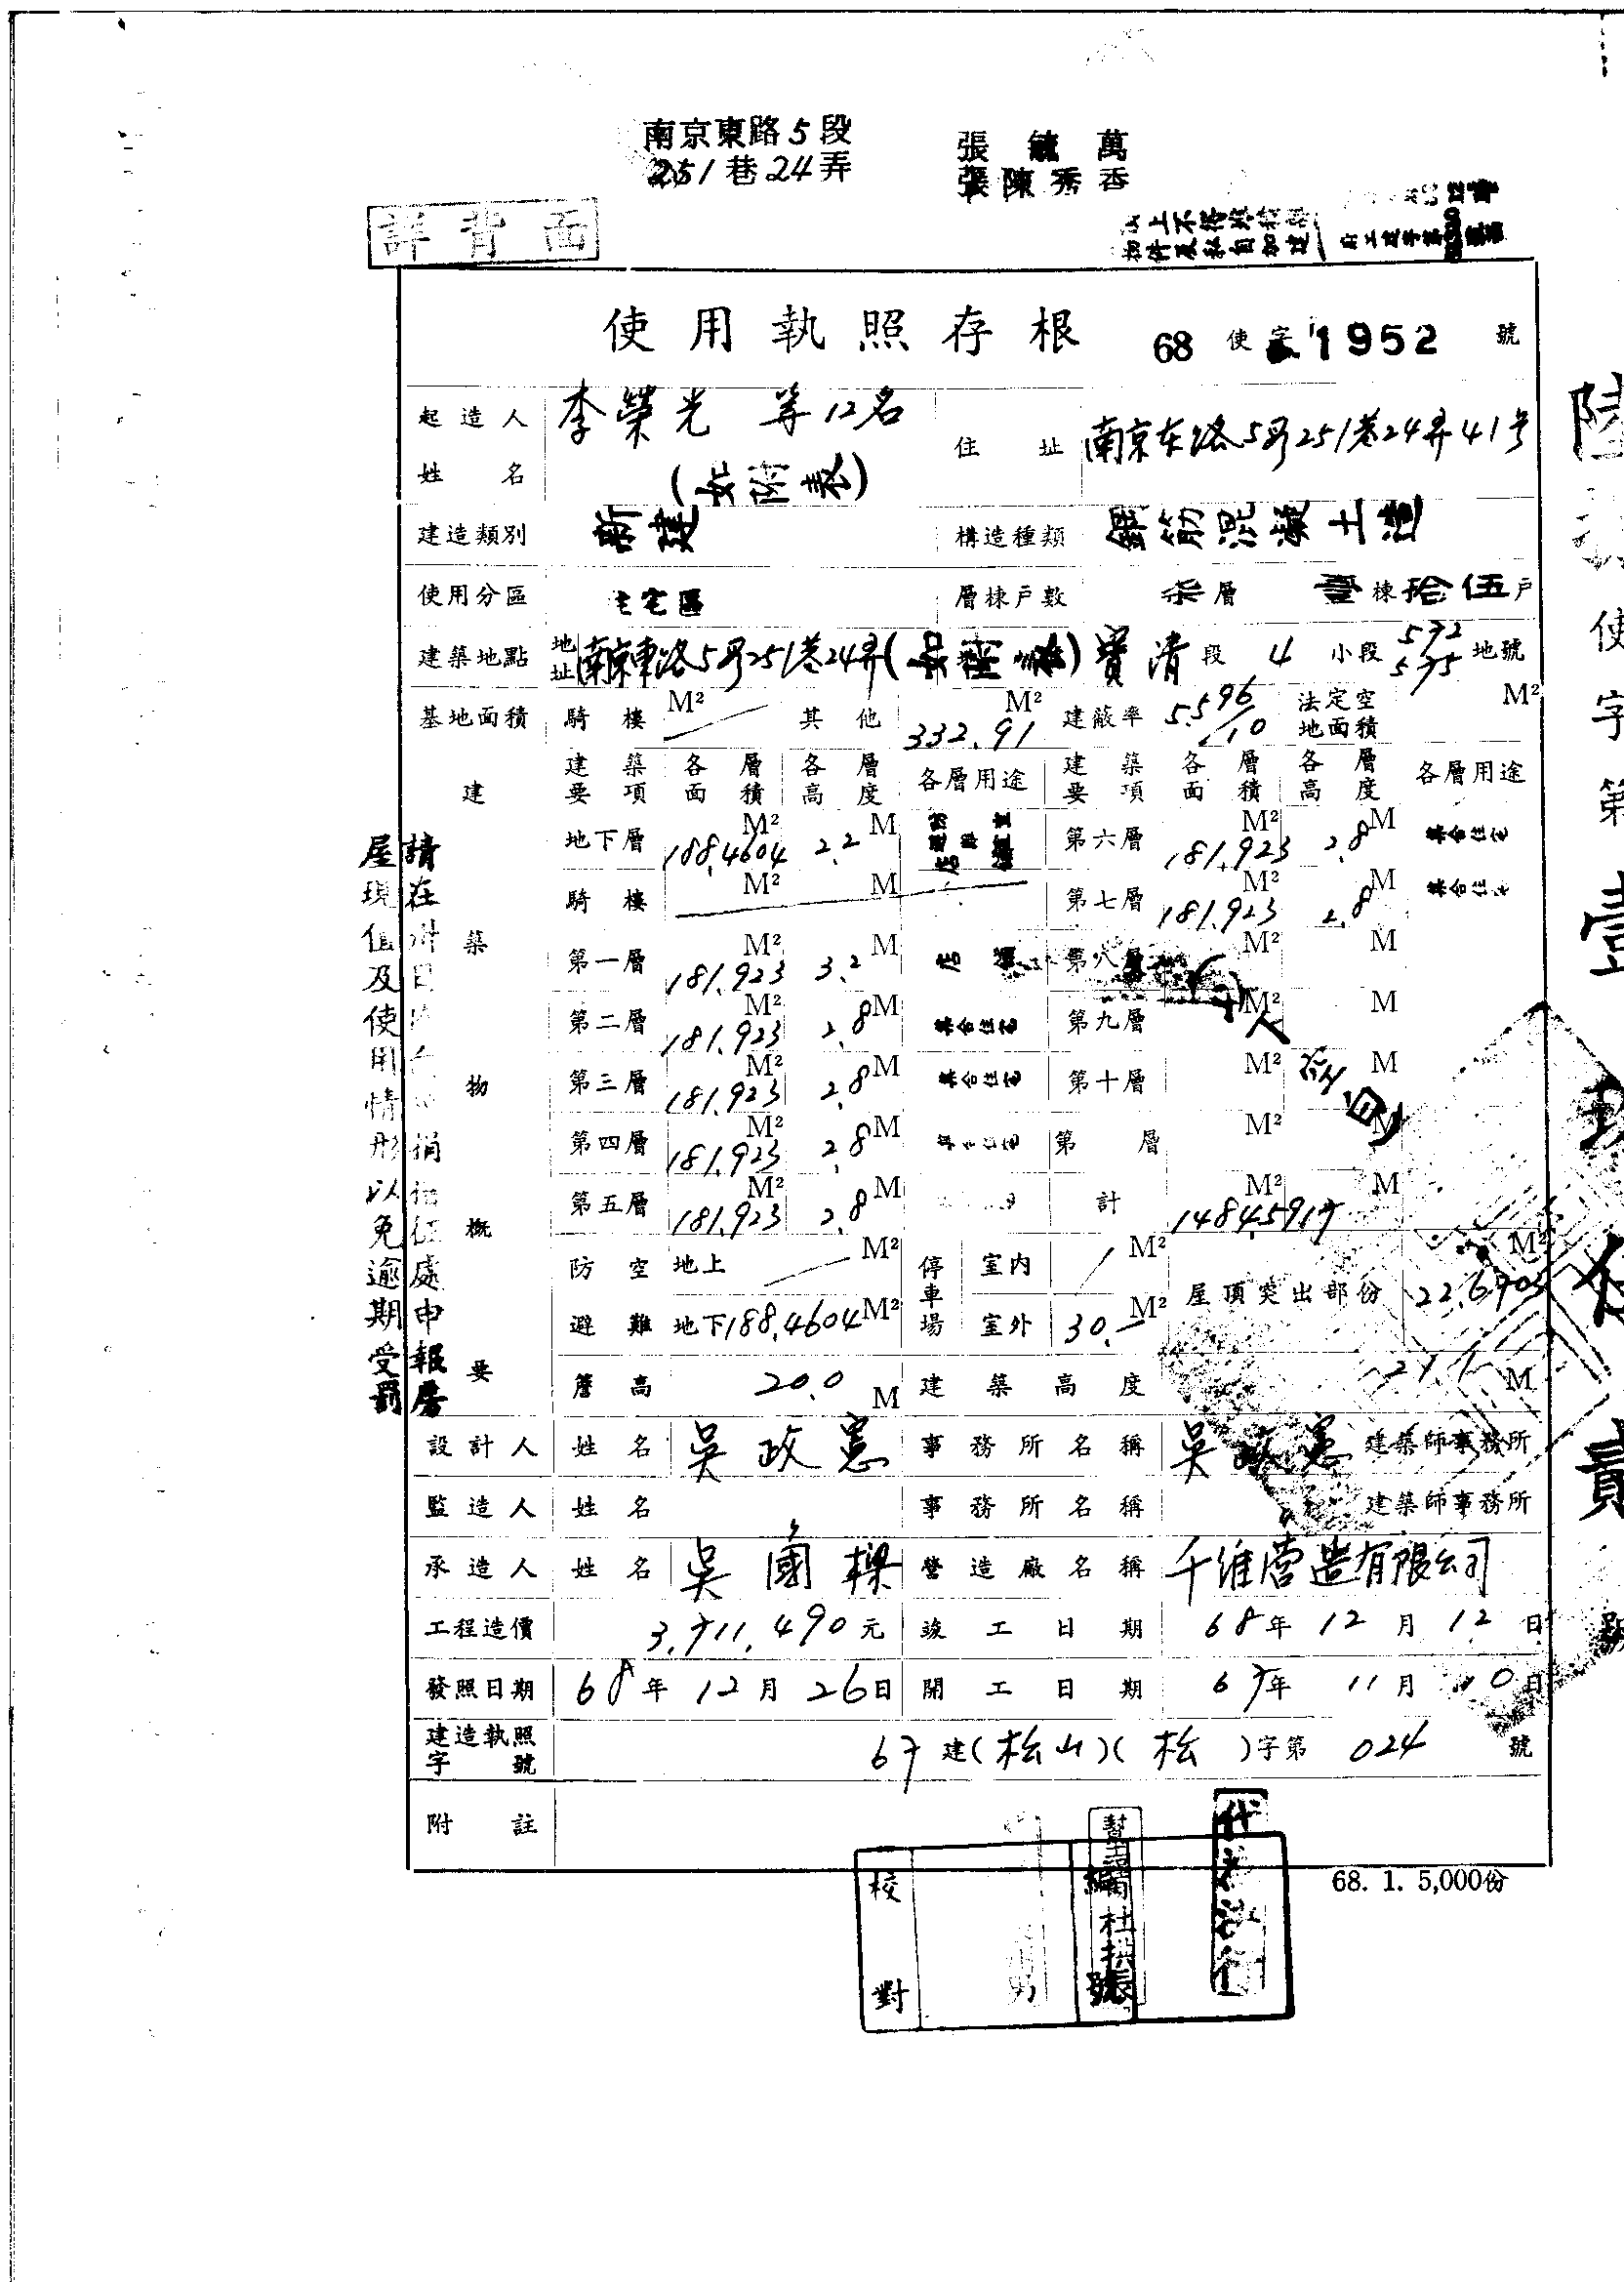 南京東路5段
251巷24弄
張毓萬
張陳秀香
詳背面
使用執照存根
68使字1952號
起造人姓名 李榮光 等12名
(如附表)
住址 南京东路5段251巷24弄41号
建造類別 新建 構造種類 鋼筋混凝土造
使用分區 住宅區 層棟戶數 柒層 壹棟拾伍戶
建築地點 地址 南京東路5段251巷24弄 寶清段 4小段 572 575 地號
基地面積 騎樓 M² 其他 332.91 M² 建蔽率 5.596/10 法定空地面積 M²
建築概要 建築要項 各層面積 各層高度 各層用途 建築要項 各層面積 各層高度 各層用途
地下層 188.4604 M² 2.2 M 第六層 181.923 M² 2.8 M 集合住宅
騎樓 M² M 第七層 181.923 M² 2.8 M 集合住宅
第一層 181.923 M² 3.2 M 店舖 第八層 M² M
第二層 181.923 M² 2.8 M 集合住宅 第九層 M² M
第三層 181.923 M² 2.8 M 集合住宅 第十層 M² M
第四層 181.923 M² 2.8 M 集合住宅 第 層 M² M
第五層 181.923 M² 2.8 M 計 M² M
以下空白
防空避難 地上 M² 停車場 室內 M² 屋頂突出部份 M²
地下 188.4604 M² 室外 30.— M²
簷高 20.0 M 建築高度 21.1 M
設計人 姓名 吳政憲 事務所名稱 吳政憲 建築師事務所
監造人 姓名 事務所名稱 建築師事務所
承造人 姓名 吳國樑 營造廠名稱 千維營造有限公司
工程造價 3,711,490元 竣工日期 68年12月12日
發照日期 68年12月26日 開工日期 67年11月10日
建造執照字號 67建(松山)(松)字第024號
附註
68. 1. 5,000份
校對
代為決行
屋現值及使用情形以免逾期受罰
使字第壹